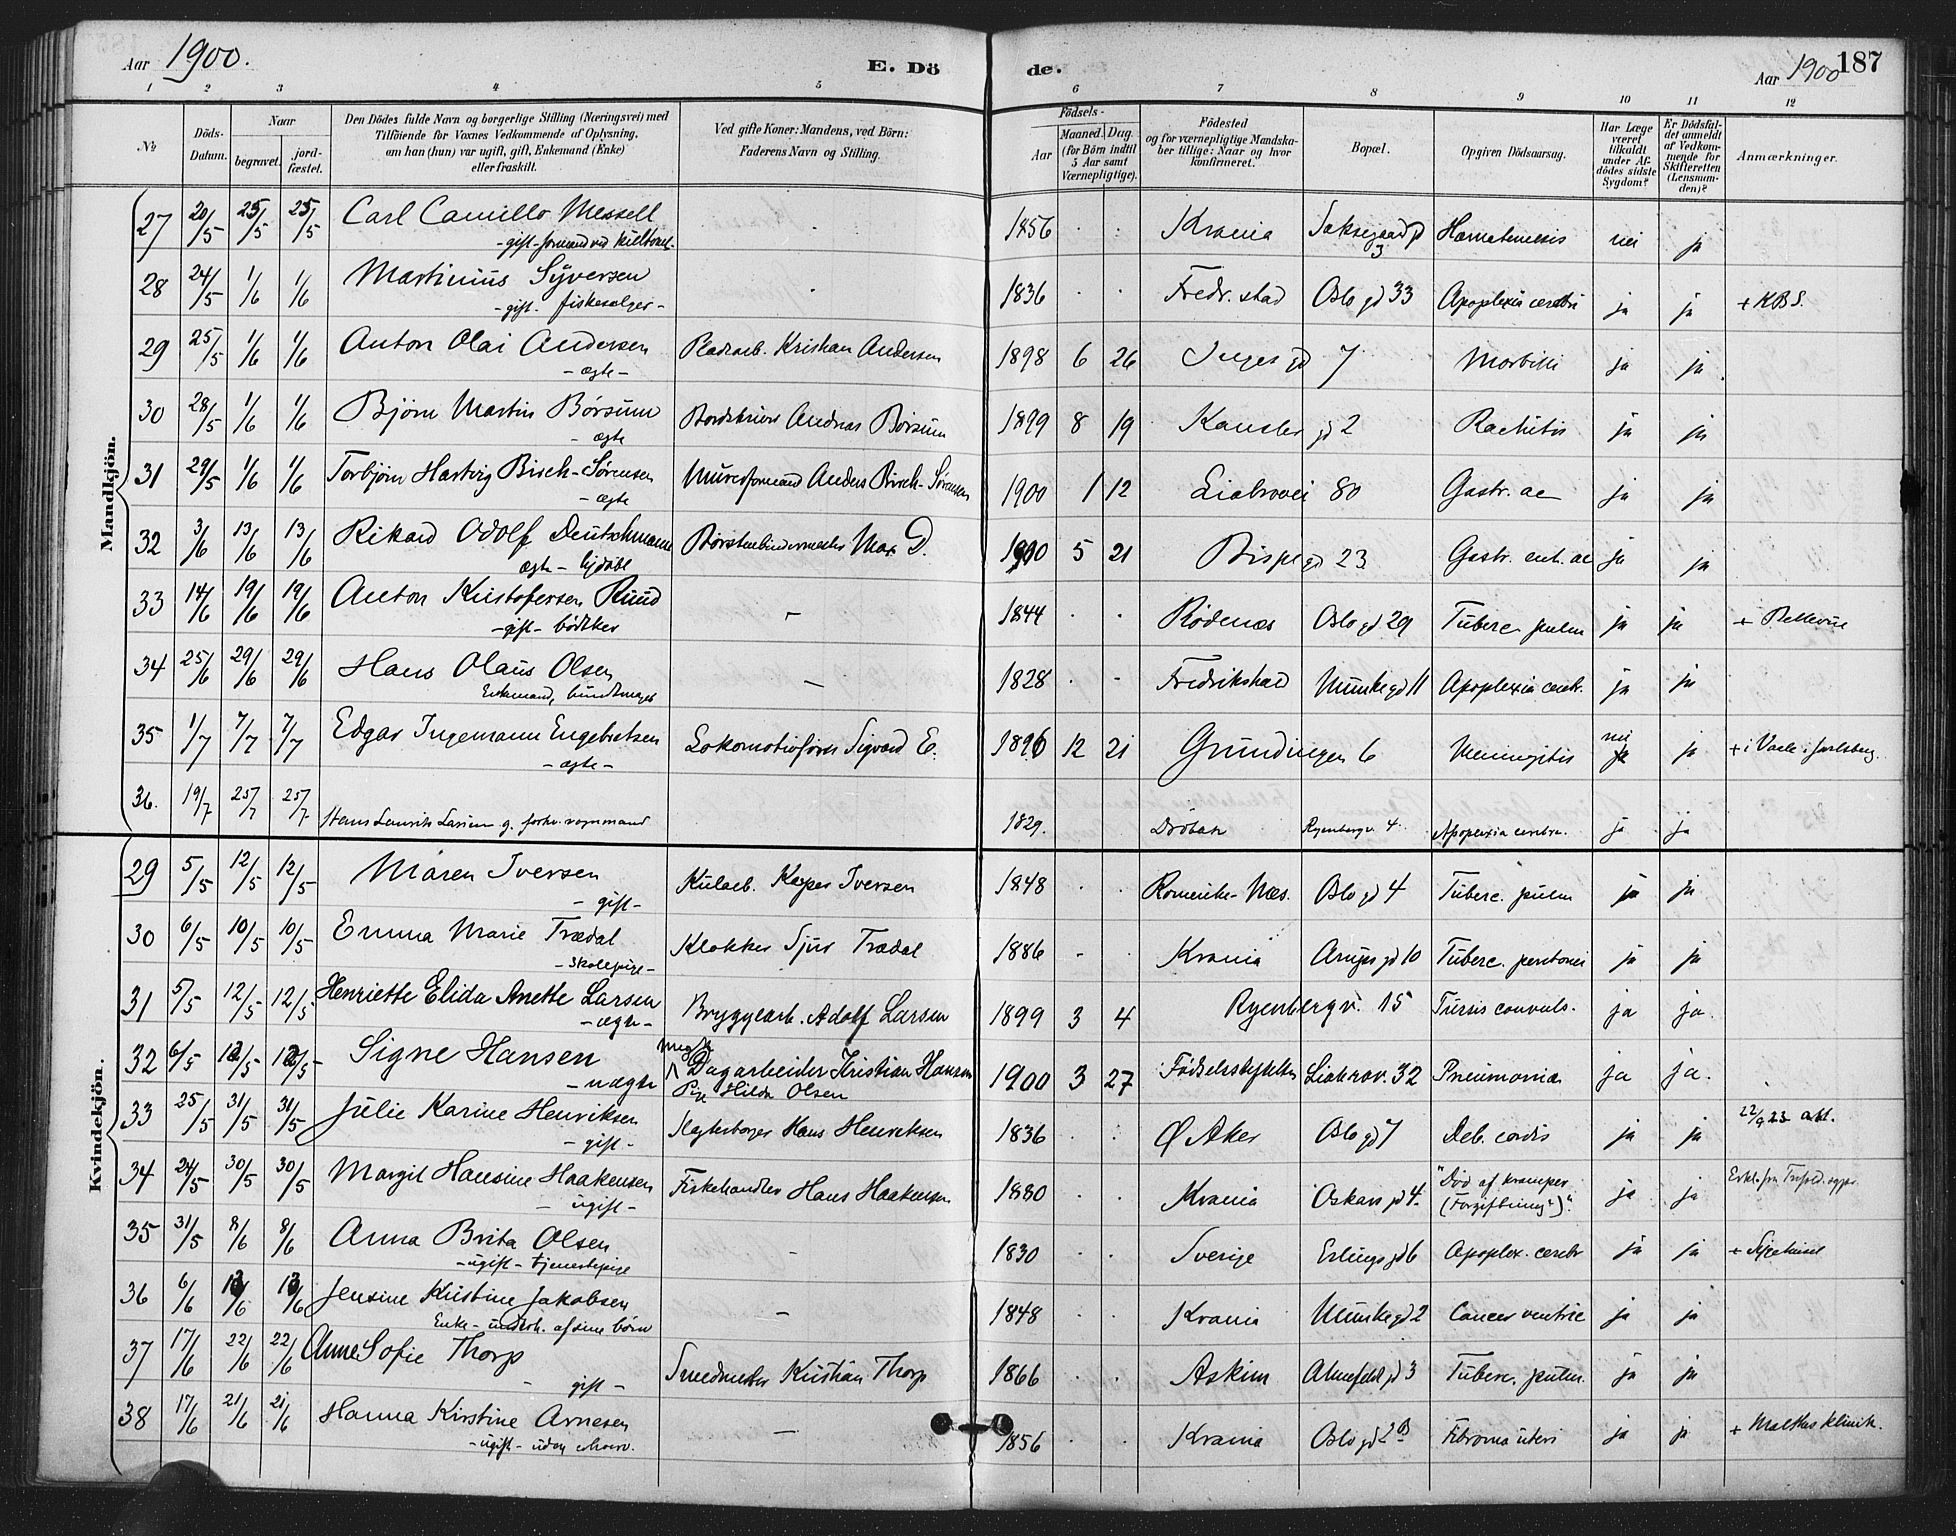 Aar 1900. E. Dö de. Aar 1900 187
1 2 3 4 5 6 7 8 9 10 11 12
№ Döds-Datum. Naar begravet. jordfæstet. Den Dödes fulde Navn og borgerlige Stilling (Næringsvei) med Tilföiende for Voxnes Vedkommende af Oplysning, om han (hun) var ugift, gift, Enkemand (Enke) eller fraskilt. Ved gifte Koner: Mandens, ved Börn: Faderens Navn og Stilling. Födsels- Aar Maaned. Dag (for Börn indtil 5 Aar samt Værnepligtige). Födested og for værnepligtige Mandskaber tillige: Naar og hvor konfirmeret. Bopæl. Opgiven Dödsaarsag. Har Læge været tilkaldt under Afdödes sidste Sygdom? Er Dödsfaldet anmeldt af Vedkommende for Skifteretten (Lensmanden)? Anmærkninger.
Mandkjön.
27 20/5 25/5 25/5 Carl Camillo Messell 1856 Krania Saksegaard gd 3 Hæmatemesis nei ja
28 24/5 1/6 1/6 Martinius Syversen 1836 Fredr.stad Oslo gd 33 Apoplexia cerebri ja ja + KBS.
- gift. fiskesælger -
29 25/5 1/6 1/6 Anton Olai Andersen Kristian Andersen 1898 6 26 Inges gd 7 Morbilli ja ja
- ægte -
30 28/5 1/6 1/6 Bjørn Martin Børsum Andreas Børsum 1899 8 19 Kansler gd 2 Rachitis ja ja
- ægte
31 29/5 1/6 1/6 Torbjørn Hartvig Birch-Sørensen Murerformand Anders Birch-Sørensen 1900 1 12 Liabrovei 80 Gastr. ac ja ja
- ægte
32 3/6 13/6 13/6 Rikard Odolf Deutschmann Børstenbindermester Max D. 1900 5 21 Bispe gd 23 Gastr. ent. ac ja ja
ægte - hjdøbt
33 14/6 19/6 19/6 Anton Kristofersen Ruud - 1844 Rødenæs Oslo gd 29 Tuberc. pulm ja ja + Bellevue
- gift - bødtker
34 25/6 29/6 29/6 Hans Olaus Olsen - 1828 Fredrikstad Munke gd 11 Apoplexia cerebr. ja ja
Enkemand, buntmager
35 1/7 7/7 7/7 Edgar Ingemann Engebretsen Lokomotivfører Sigvard E. 1896 12 21 Grundingen 6 Meningitis nei ja + i Vaale i Jarlsberg.
- ægte -
36. 19/7 25/7 25/7 Hans Laurits Larsen g. forhv. vognmand 1829. Drøbak Ryenbergv. 4. Apoplexia cerebri. ja ja
Kvindekjön.
29 5/5 12/5 12/5 Maren Iversen Kularb. Kasper Iversen 1848 Romerike-Næs. Oslo gd 4 Tuberc. pulm ja ja
- gift -
30 6/5 10/5 10/5 Emma Marie Trædal Klokker Sjur Trædal 1886 Krania Arups gd 10 Tuberc. peritonei ja ja
- skolepige -
31 5/5 12/5 12/5 Henriette Elida Anette Larsen Bryggearb. Adolf Larsen 1899 3 4 Ryenbergv. 15 Tussis convuls. ja ja.
- ægte -
32 6/5 12/5 12/5 Signe Hansen Dagarbeider Kristian Hansen 1900 3 27 Fødselsstiftelsen Liabrov. 32 Pneumonia ja ja.
- uægte Pige Hilda Olsen
33 25/5 31/5 31/5 Julie Karine Henriksen Hans Henriksen 1836 Ø Aker Oslo gd 7 Deb. cordis ja ja 22/9 23 att.
- gift -
34 24/5 30/5 30/5 Margit Hansine Haakensen Fiskehandler Hans Haakensen 1880 Krania Oskars gd 4. "Død af kramper (Forgiftning?)". ja ja
- ugift -
35 31/5 8/6 8/6 Anna Brita Olsen - 1830 Sverige Erlings gd 6 Apoplex. cerebr ja ja + Sygehuset
- ugift - tjenestepige
36 6/6 13/6 13/6 Jensine Kristine Jakobsen - 1848 Krania Munke gd 2 Cancer ventric ja ja
Enke - underh. af sine børn
37 17/6 22/6 22/6 Anne Sofie Thorp Smedmester Kristian Thorp 1866 Askim Almefeldt gd 3 Tuberc. pulm. ja ja
- gift -
38 17/6 21/6 21/6 Hanna Kirstine Arnesen - 1856 Krania Oslo gd 2B Fibroma uteri ja ja + Malthes klinik.
- ugift - uden erhverv.